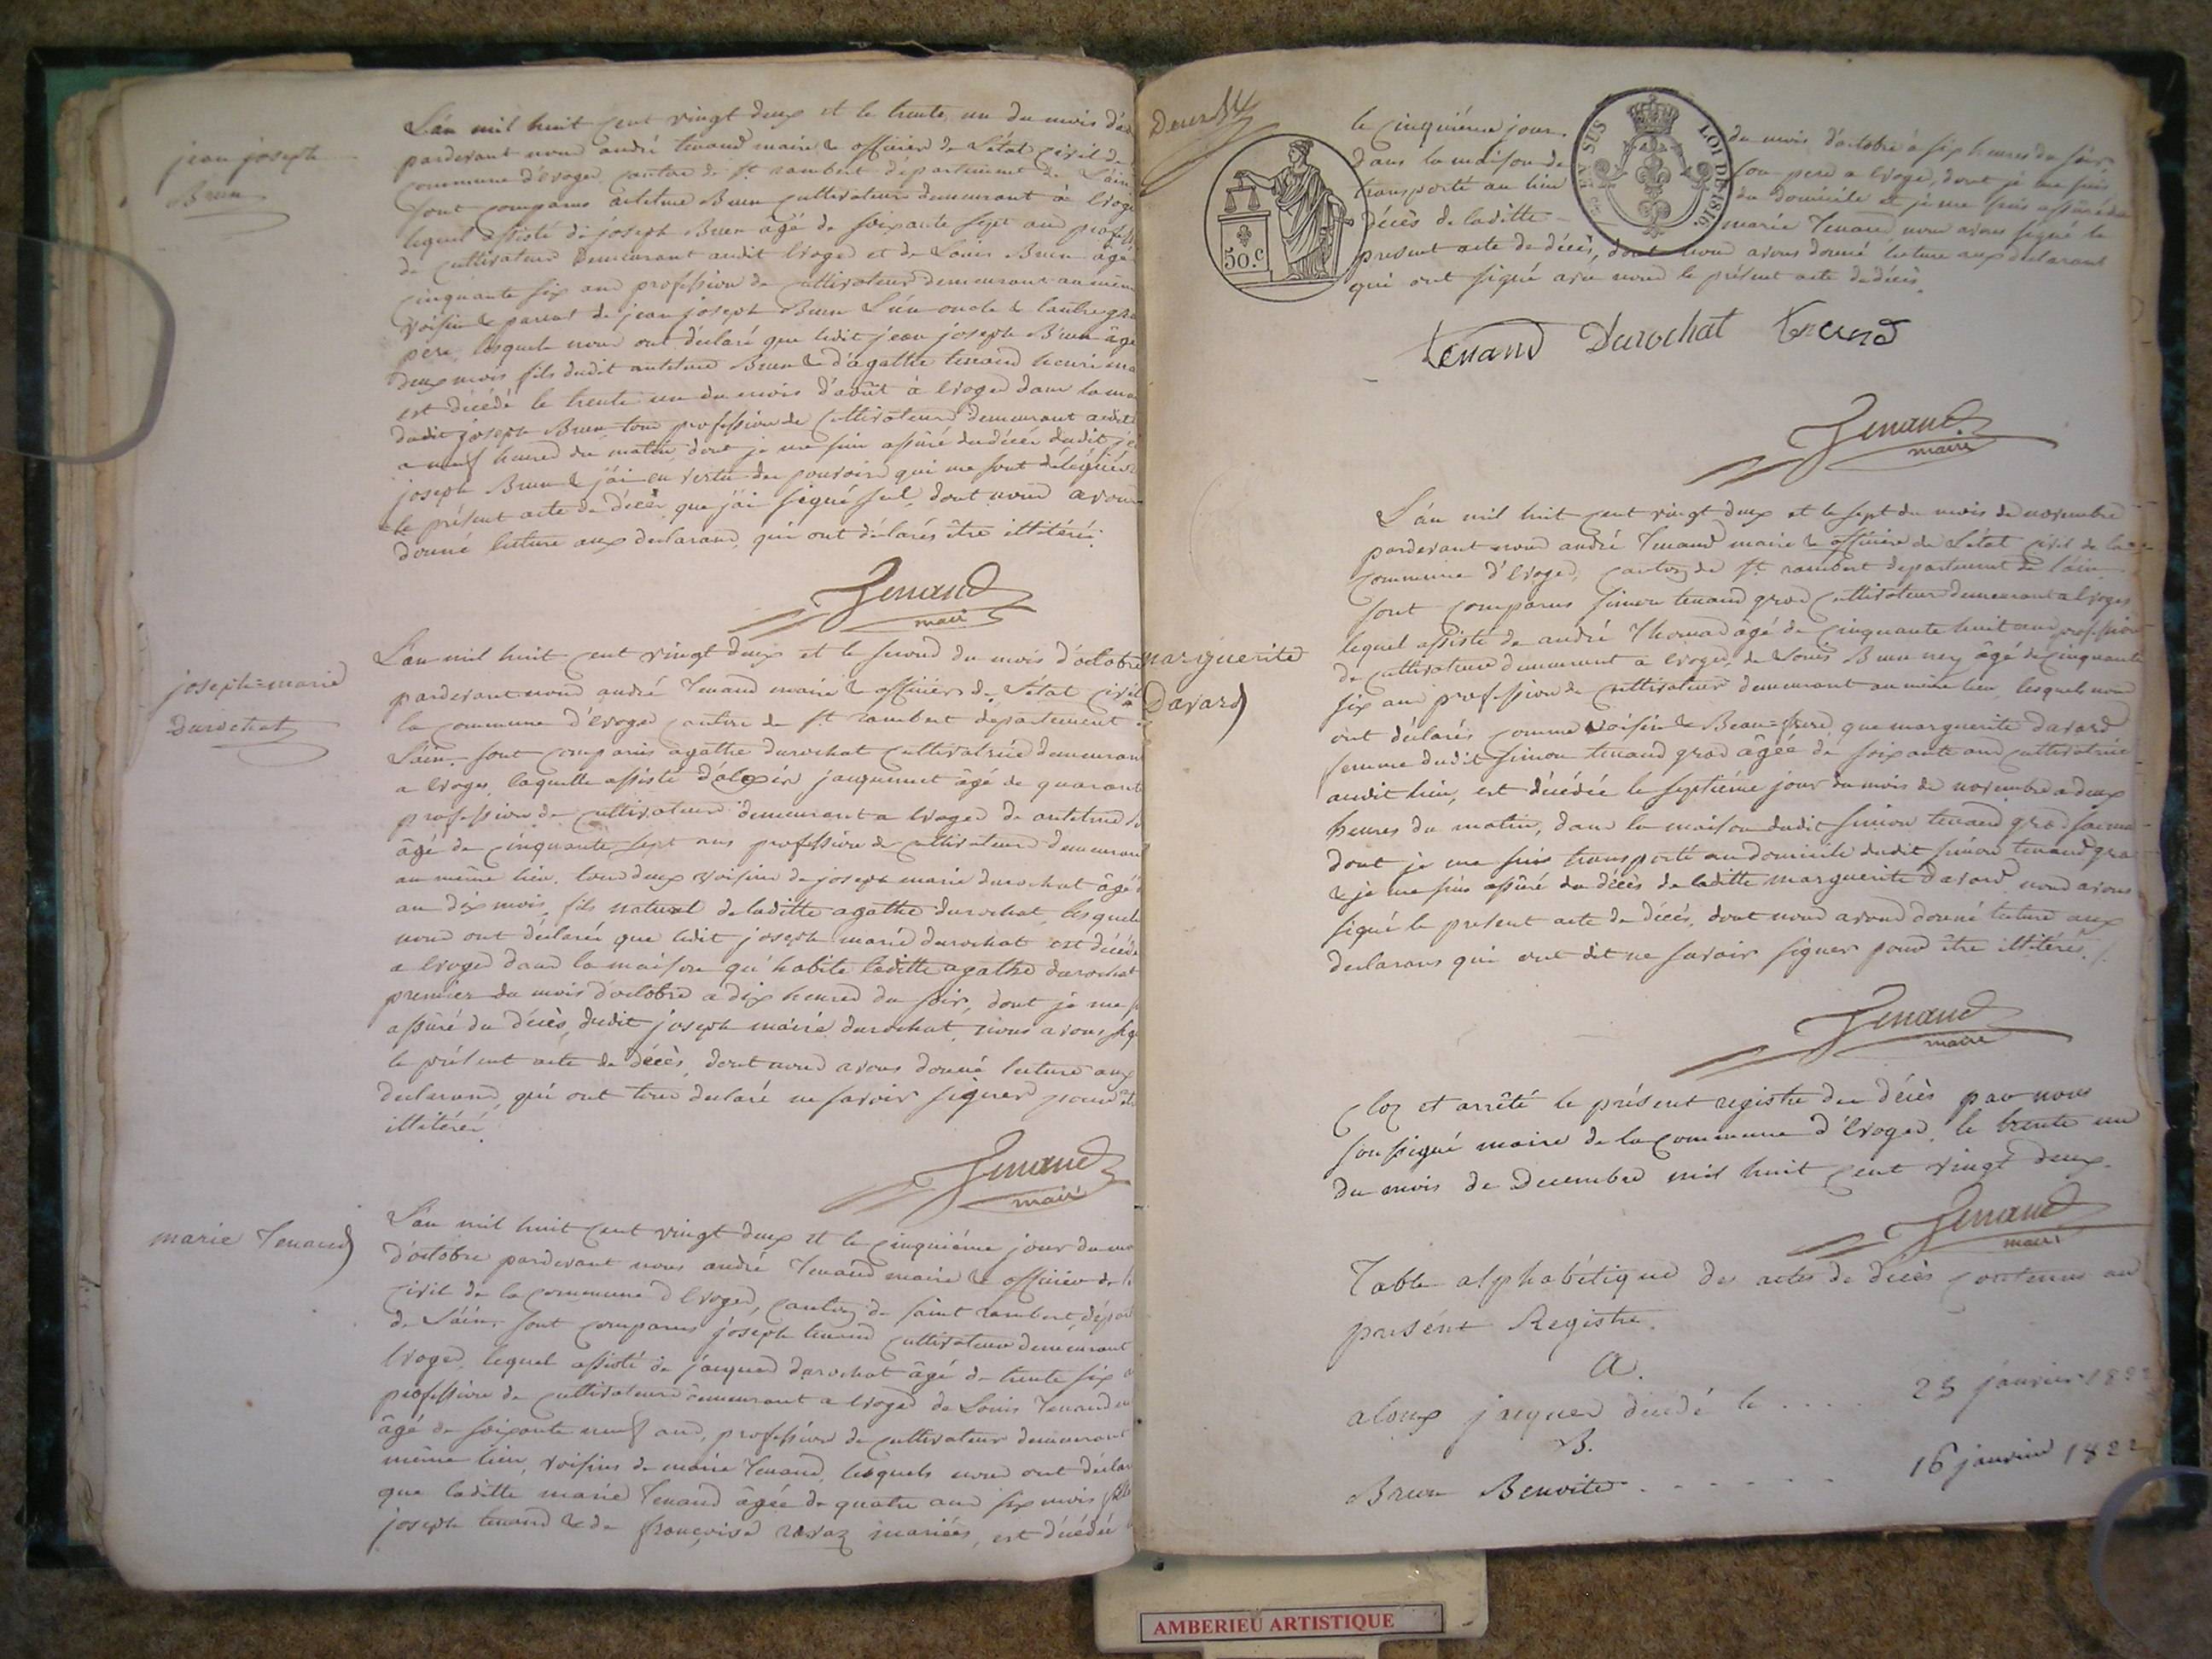 jean joseph
Brun
L'an mil huit cent vingt deux et le trente un du mois
pardevant nous andré tenand maire & officier de l'état civil de
commune d'evoges, canton de st rambert département de l'ain
sont comparus antelme Brun cultivateur demeurant à Evoges
lequel assisté de joseph Brun âgé de soixante sept ans
de cultivateur demeurant audit Evoges et de Louis Brun âgé
cinquante six ans profession de cultivateur demeurant au même
voisin & parens de jean joseph Brun l'un oncle & l'autre
pere, lesquels nous ont déclaré que ledit jean joseph Brun âgé
deux mois fils dudit antelme Brun & d'agathe tenand
est décédé le trente un du mois d'août à Evoges dans la
dudit joseph Brun, tous profession de cultivateurs demeurant audit
a neuf heures du matin, dont je me suis assuré du décès dudit
joseph Brun & j'ai en vertu des pouvoirs qui me sont délégués
le présent acte de décès que j'ai signé seul, dont nous avons
donné lecture aux declarans, qui ont déclarés être illitérés.
Tenand
maire
joseph=marie
Durochat
L'an mil huit cent vingt deux et le second du mois d'octobre
pardevant nous andré Tenand maire & officier de l'état civil
la commune d'Evoges canton de st rambert département
L'ain. sont comparus agathe durochat cultivatrice demeurant
a Evoges, laquelle assisté d'alexis jacquemet âgé de quarante
profession de cultivateur demeurant a Evoges de antelme
âgé de cinquante sept ans profession de cultivateur demeurant
au même lieu. tous deux voisins de joseph marie durochat âgé
an dix mois, fils naturel de laditte agathe durochat, lesquels
nous ont déclarés que ledit joseph marie durochat est décédé
a Evoges dans la maison qu'habite laditte agathe durochat
premier du mois d'octobre a dix heures du soir, dont je me
assuré du décès, dudit joseph marie durochat, nous avons
le présent acte de décès, dont nous avons donné lecture aux
declarans, qui ont tous declaré ne savoir signer pour
illitérés.
Tenand
maire
marie Tenand
L'an mil huit cent vingt deux et le cinquiéme jour du
d'octobre pardevant nous andré Tenand maire & officier de
civil de la commune d'Evoges, canton de saint rambert,
de L'ain, sont comparus joseph tenand cultivateur demeurant
Evoges, lequel assisté de jacques durochat âgé de trente six
profession de cultivateur demeurant a Evoges de Louis Tenand
âgé de soixante neuf ans, profession de cultivateur demeurant
même lieu, voisins de marie Tenand, lesquels nous ont
que laditte marie Tenand âgée de quatre ans six mois fille
joseph tenand & de françoise ravaz mariés, est décédée
50.c
EN SUS
LOI DE 1816.
le cinquiéme jour du mois d'octobre à six heures du soir
dans la maison de son pere a Evoges, dont je me suis
transporté au lieu du domicile et je me suis assuré du
décès de laditte marie Tenand, nous avons signé le
present acte de décès, dont nous avons donné lecture aux declarans
qui ont signé avec nous le présent acte de décès.
tenand Durochat tenand
Tenand
maire
marguerite
Davard
L'an mil huit cent vingt deux et le sept du mois de novembre
pardevant nous andré Tenand maire & officier de l'état civil de la
commune d'Evoges, canton de st rambert departement de l'ain
sont comparus simon tenand gros cultivateur demeurant a Evoges
lequel assisté de andré Thomas âgé de cinquante huit ans profession
de cultivateur demeurant a Evoges, de Louis Brun ney âgé de cinquante
six ans profession de cultivateur demeurant au même lieu, lesquels nous
ont déclarés comme voisin & Beau=frere, que marguerite davard
femme dudit simon tenand gros âgée de soixante ans cultivatrice
audit lieu, est décédée le septiéme jour du mois de novembre a deux
heures du matin, dans la maison dudit simon tenand gros
dont je me suis transporté au domicile dudit simon tenand gros
& je me suis assuré du décès de laditte marguerite davard, nous avons
signé le present acte de décès, dont nous avons donné lecture aux
declarans qui ont dit ne savoir signer pour être illitérés.
Tenand
maire
Clos et arrêté le présent registre des décès par nous
soussigné maire de la commune d'Evoges, le trente un
du mois de Decembre mil huit cent vingt deux.
Tenand
maire
Table alphabétique des actes de décès contenus au
présent Registre.
A.
aloux jacques decédé le ..... 25 janvier 1822
B.
Brun Benoite ...... 16 janvier 1822
AMBERIEU ARTISTIQUE